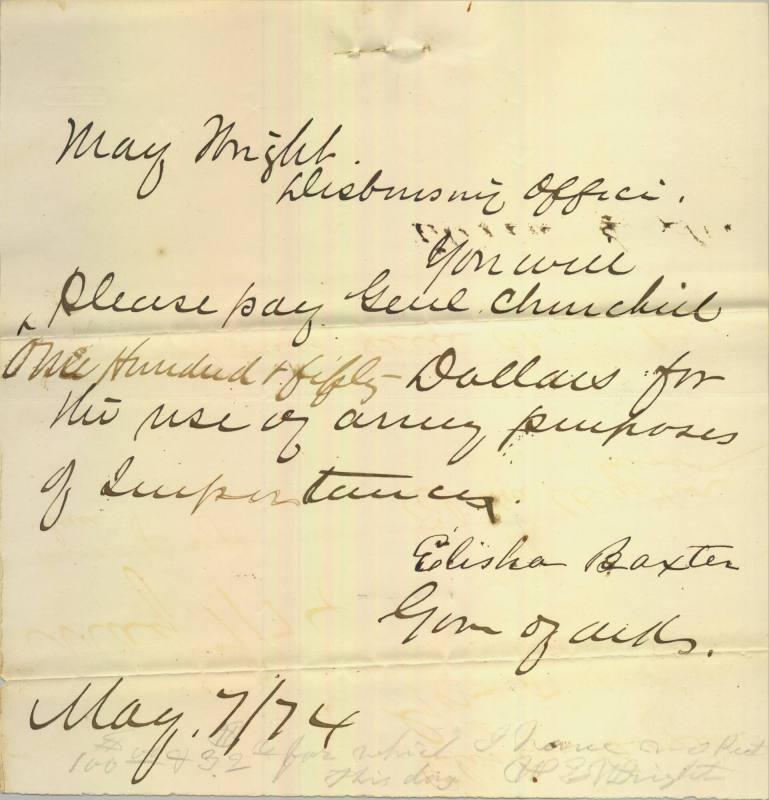 May Wright.
Disbursing Office.
You will
Please pay Genl. Churchill
One Hundred & fifty Dollars for
the use of army purposes
of Importance.
Elisha Baxter
Gov of Arks.
May. 7/74
100 & 32 for which I have no Rect
this day Wright